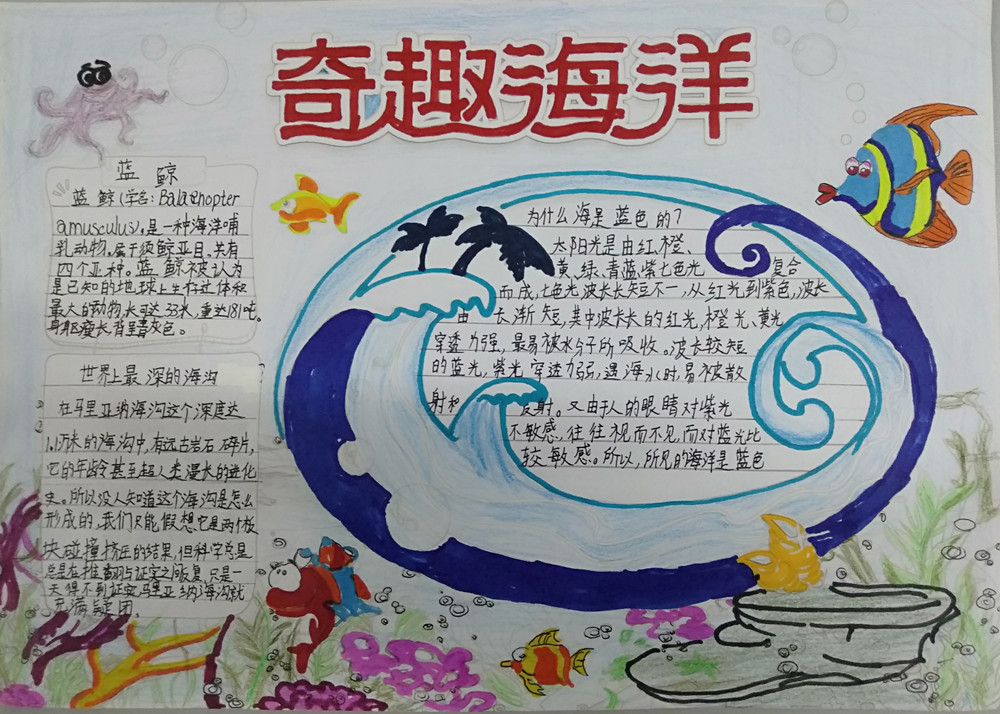 奇趣海洋
蓝鲸
蓝鲸(学名:Balaenopter
amusculus),是一种海洋哺
乳动物,属于须鲸亚目,共有
四个亚种。蓝鲸被认为
是已知的地球上生存过体积
最大的动物,长可达33米,重达181吨。
身躯瘦长背呈青灰色。
世界上最深的海沟
在马里亚纳海沟这个深度达
1.1万米的海沟中,有远古岩石碎片,
它的年龄甚至超人类漫长的进化
史。所以没人知道这个海沟是怎么
形成的,我们只能假想它是两个板
块碰撞挤压的结果,但科学总是
总是在推翻与证实之间恢复,只是一
天得不到证实马里亚纳海沟就
充满疑团.
为什么海是蓝色的?
太阳光是由红、橙、
黄、绿、青、蓝、紫七色光复合
而成,七色光波长长短不一,从红光到紫色,波长
由长渐短,其中波长长的红光,橙光、黄光
穿透力强,最易被水分子所吸收。波长较短
的蓝光,紫光穿透力弱,遇海水时,易被散
射和反射。又由于人的眼睛对紫光
不敏感,往往视而不见,而对蓝光比
较敏感。所以,所见的海洋是蓝色